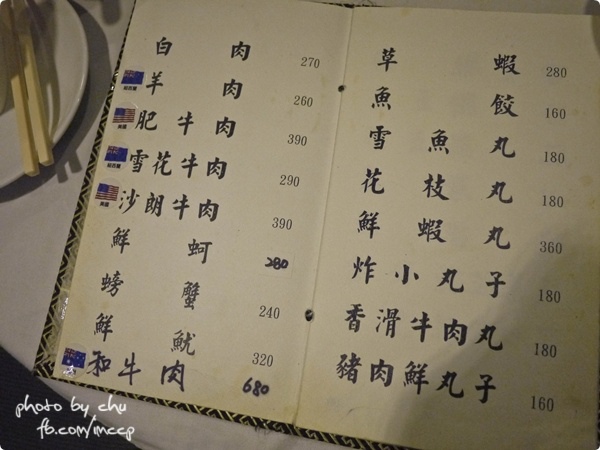 白肉 270
羊肉 260
肥牛肉 390
雪花牛肉 290
沙朗牛肉 390
鮮蚵 280
螃蟹 240
鮮魷 320
和牛肉 680
草蝦 280
魚餃 160
雪魚丸 180
花枝丸 180
鮮蝦丸 360
炸小丸子 180
香滑牛肉丸 180
豬肉鮮丸子 160
photo by chu
fb.com/imccp